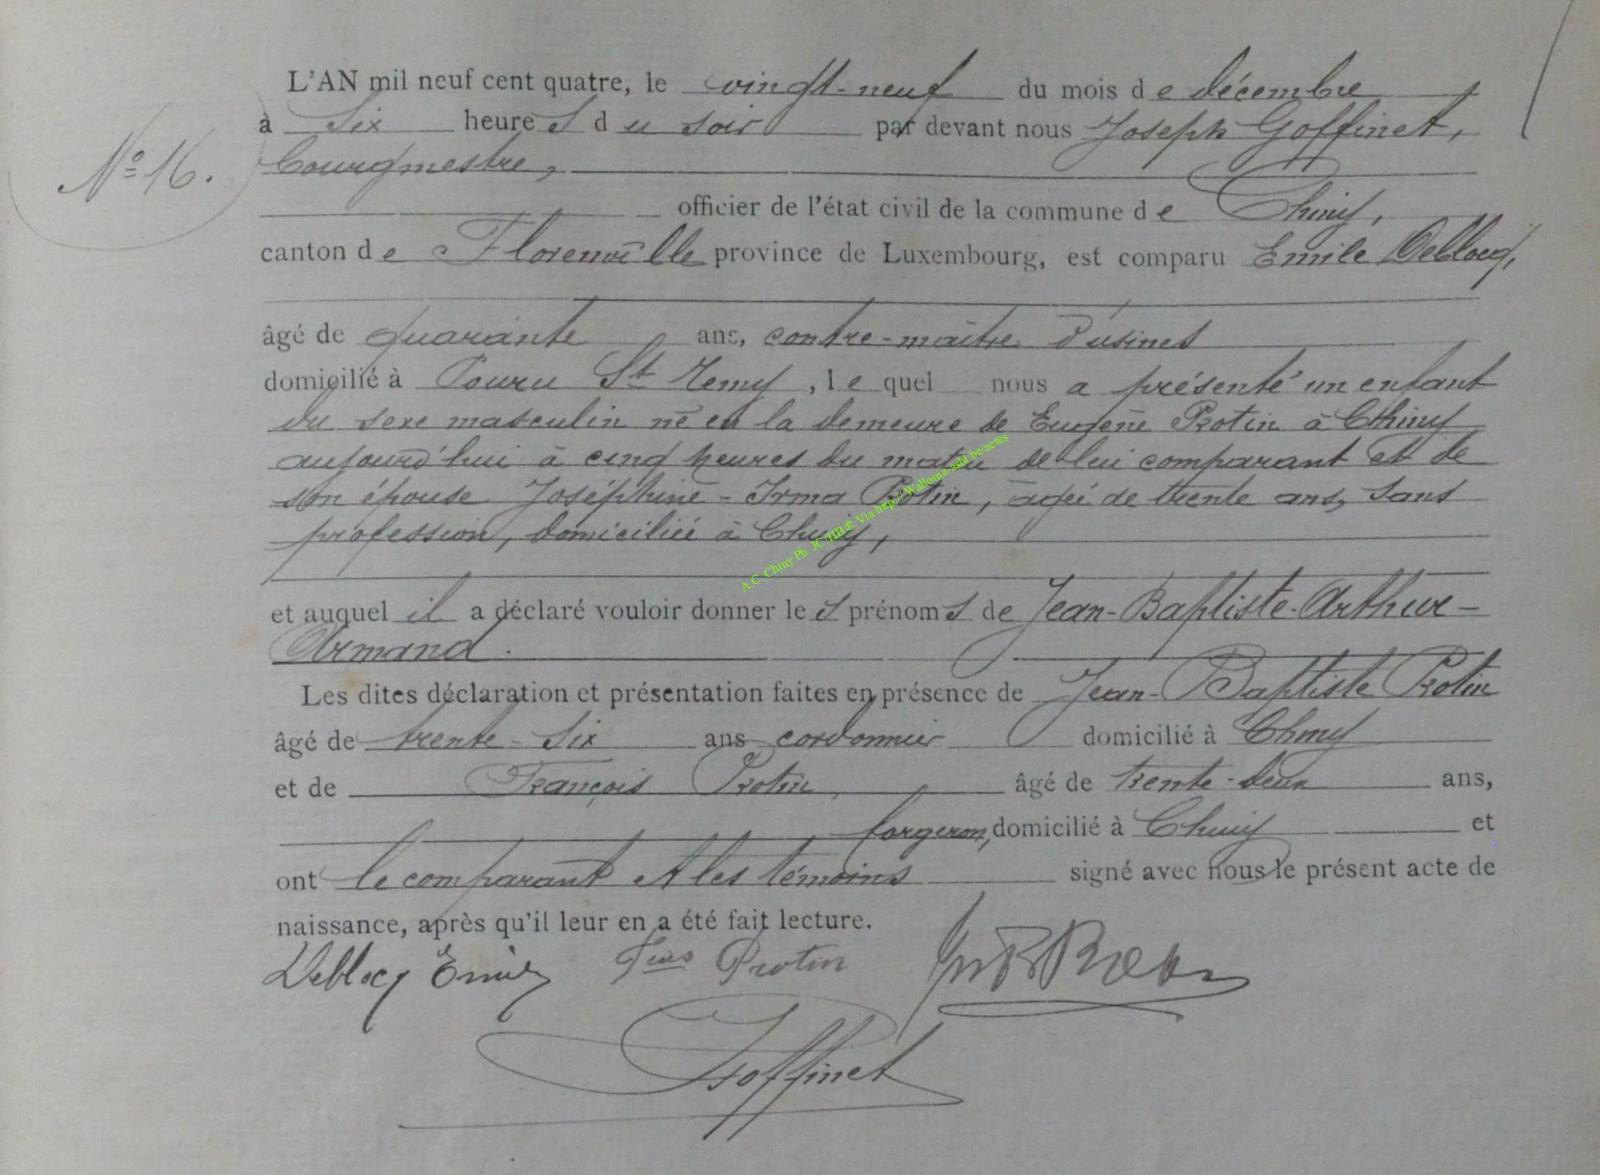 L'AN mil neuf cent quatre, le vingt-neuf du mois de décembre
à six heures du soir par devant nous Joseph Goffinet,
N° 16. bourgmestre,
officier de l'état civil de la commune de Chiny,
canton de Florenville province de Luxembourg, est comparu Emile Deblocq,
âgé de quarante ans, contre-maître d'usines
domicilié à Pouru St Remy, lequel nous a présenté un enfant
du sexe masculin né en la demeure de Eugène Protin à Chiny
aujourd'hui à cinq heures du matin de lui comparant et de
son épouse Joséphine-Irma Protin, âgée de trente ans, sans
profession, domiciliée à Chiny,
A.C. Chiny Ph. JC & Via http//Wallonia-asbl.be/actes
et auquel il a déclaré vouloir donner les prénoms de Jean-Baptiste-Arthur-
Armand.
Les dites déclaration et présentation faites en présence de Jean-Baptiste Protin
âgé de trente-six ans cordonnier domicilié à Chiny
et de François Protin, âgé de trente-deux ans,
forgeron, domicilié à Chiny et
ont le comparant et les témoins signé avec nous le présent acte de
naissance, après qu'il leur en a été fait lecture.
Deblocq Emile Fçois Protin
Goffinet